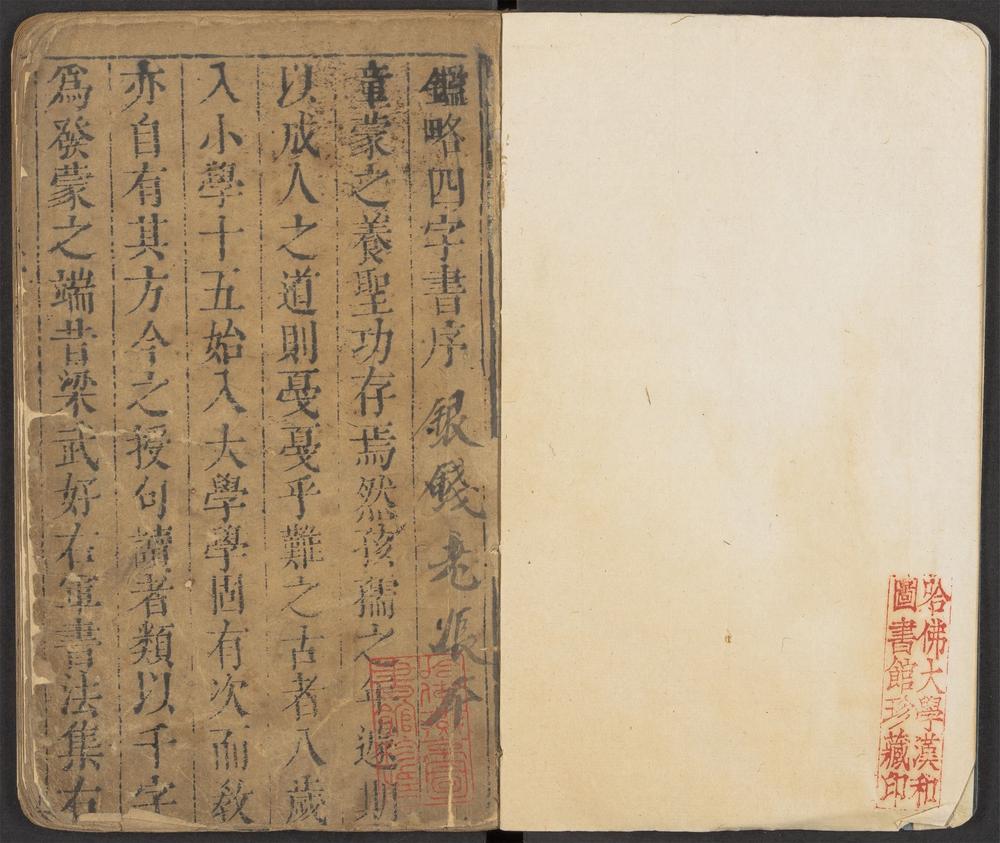 哈佛大學漢和
圖書館珍藏印
鑑略四字書序 銀錢老張介
童蒙之養聖功存焉然孩孺之年遽期
以成人之道則戞戞乎難之古者八歲
入小學十五始入大學學固有次而敎
亦自有其方今之授句讀者類以千字
爲發蒙之端昔梁武好右軍書法集右